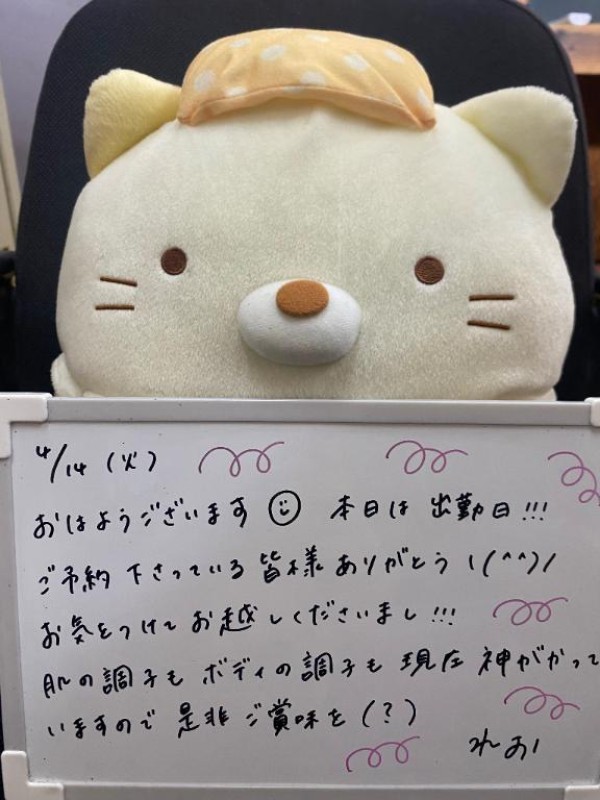 4/14 (火)
おはようございます☺ 本日は 出勤日!!!
ご予約 下さっている 皆様 ありがとう \(^^)/
お気をつけて お越しくださいまし!!!
肌の調子も ボディの調子も 現在 神がかって
いますので 是非 ご賞味を (?)
れお